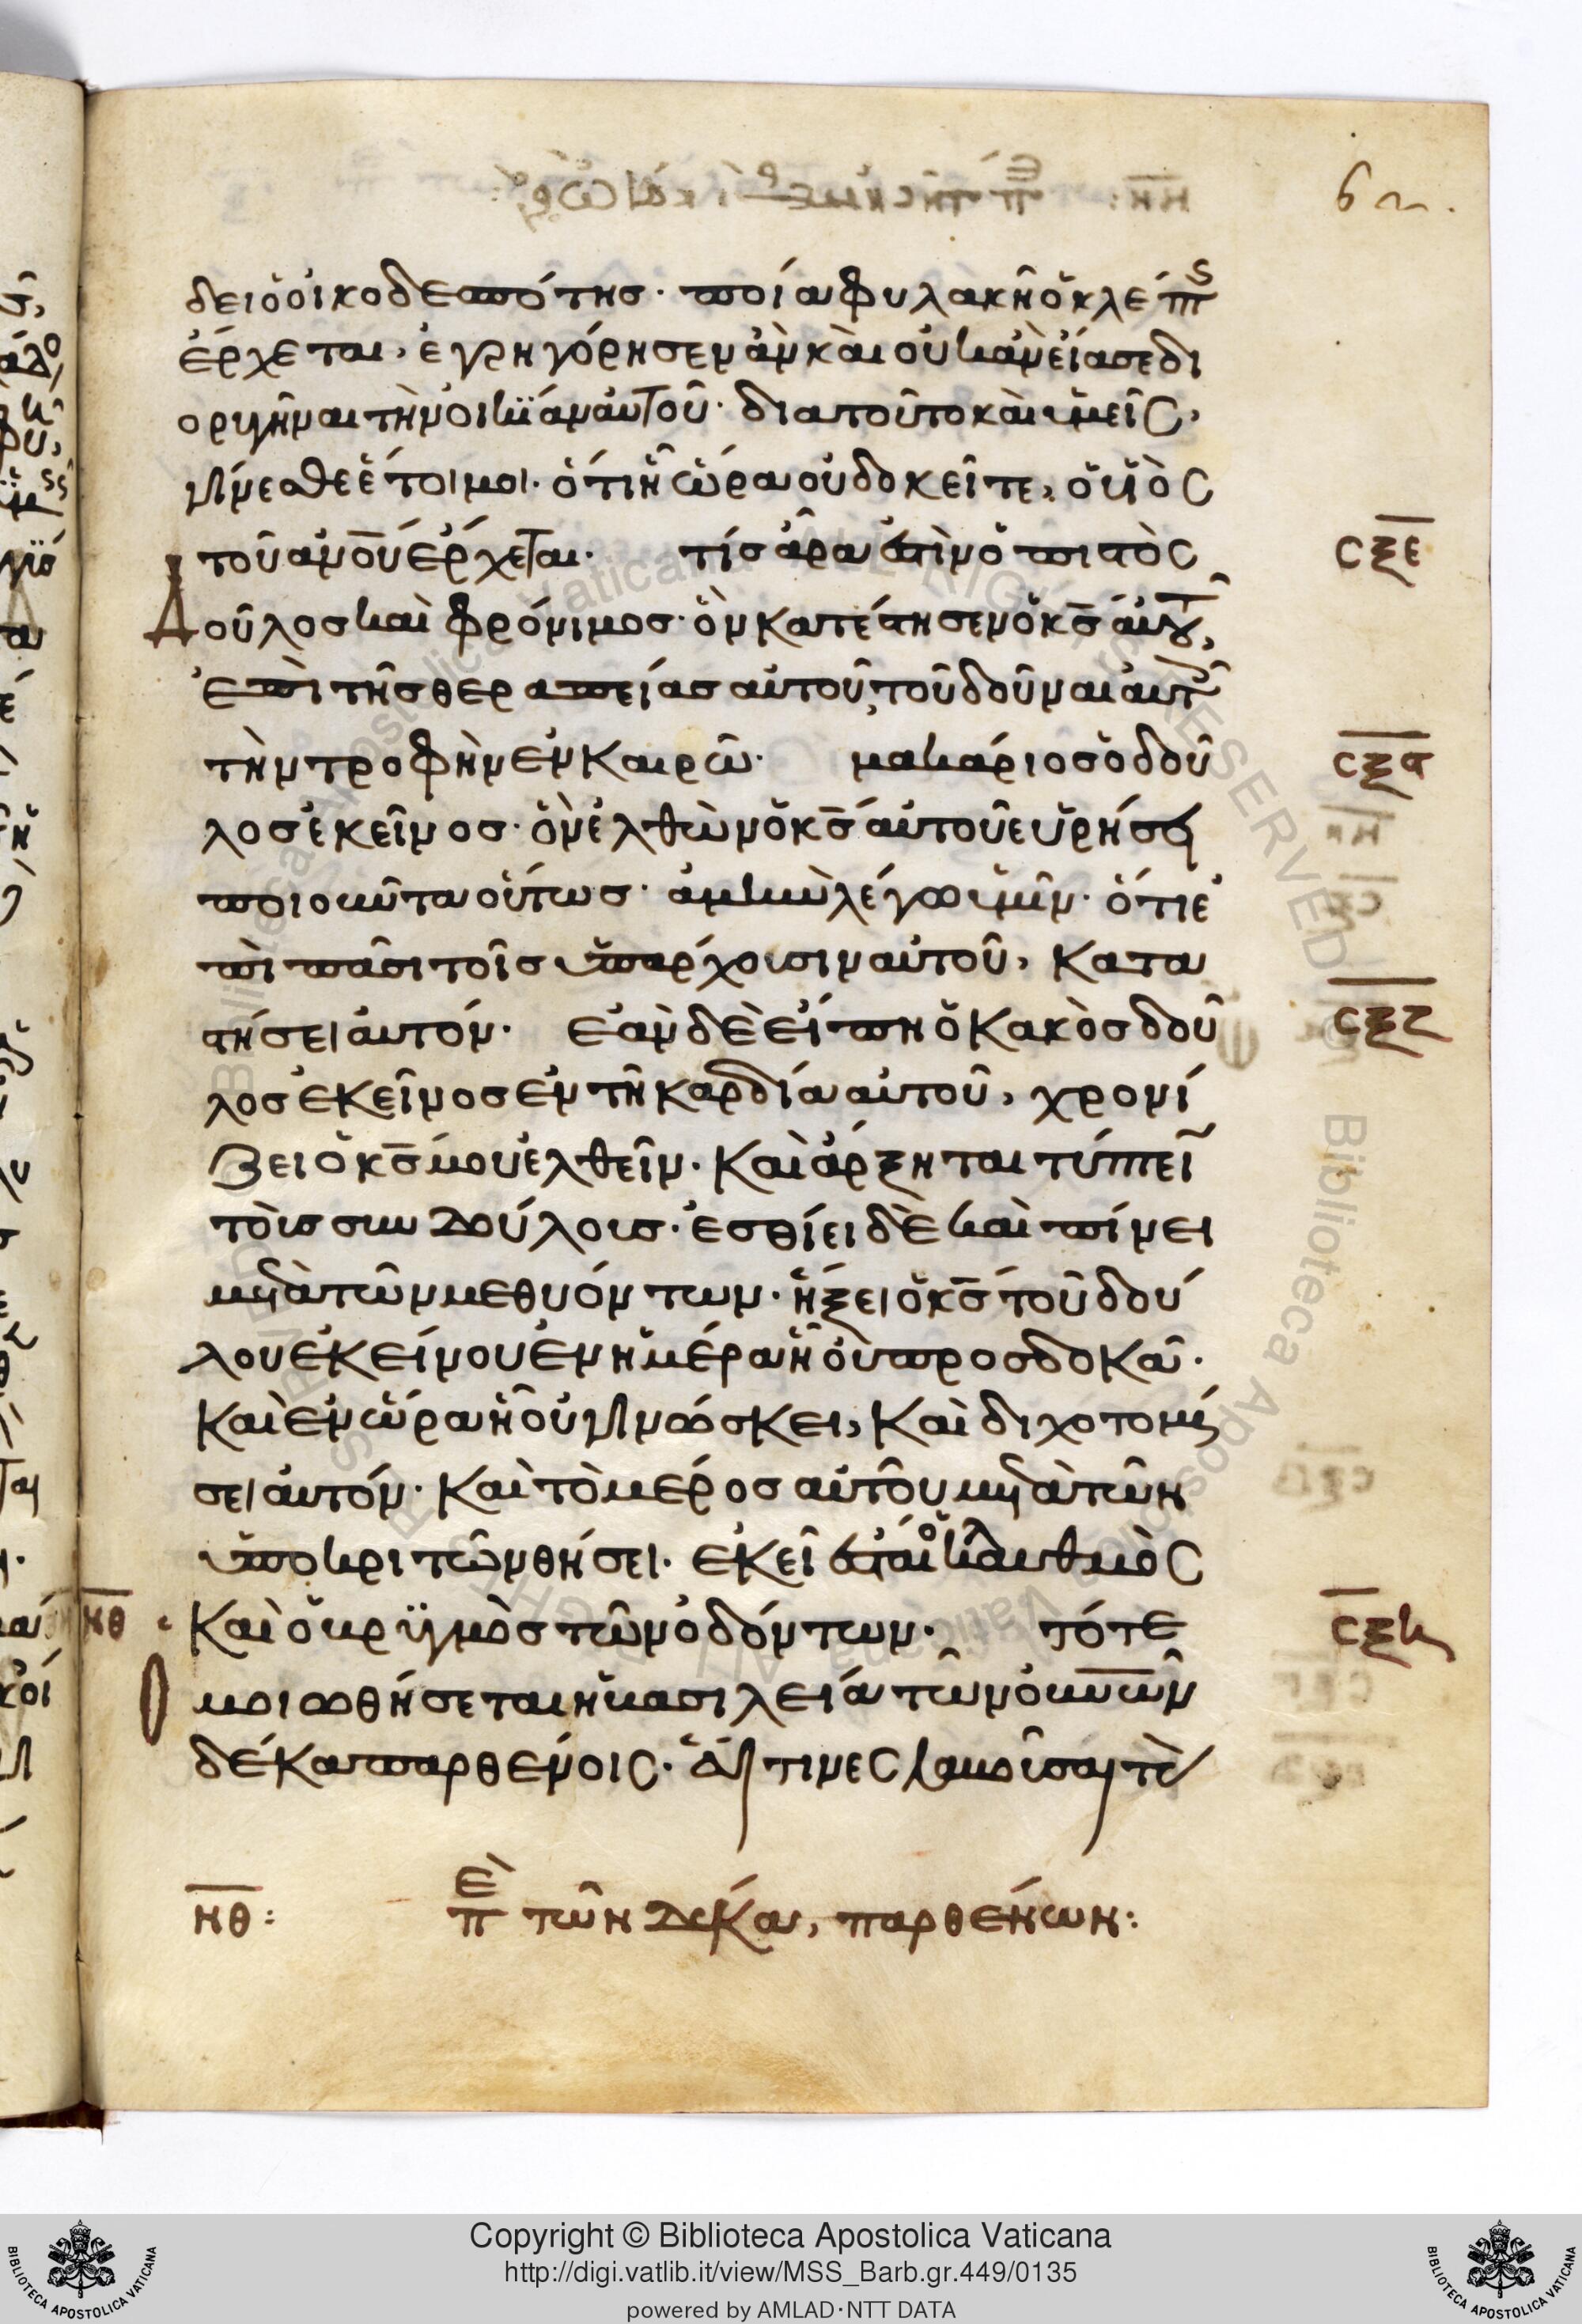 6 α.
δει ὁ οἰκοδεσπότης· ποία φυλακῇ ὁ κλέπτς
ἔρχεται, ἐγρηγόρησεν ἂν καὶ οὐκ ἂν εἴασε δι
ορυγῆναι τὴν οἰκίαν αὐτοῦ· διατοῦτο καὶ ὑμεῖς,
γίνεσθε ἕτοιμοι· ὅτι ἧ ὥρα οὐ δοκεῖτε, ὁ υἱὸς
τοῦ ανου ἔρχεται· τίς ἆρα ἐστὶν ὁ πιστὸς
δοῦλος καὶ φρόνιμος· ὃν κατέστησεν ὁ κς αὐτοῦ,
ἐπὶ τῆς θεραπείας αὐτοῦ, τοῦ δοῦναι αὐτοῖς
τὴν τροφὴν ἐν καιρῶ· μακάριος ὁ δοῦ
λος ἐκεῖνος· ὃν ἐλθὼν ὁ κς αὐτοῦ εὑρήσει
ποιοῦντα οὕτως· ἀμὴν λέγω ὑμῖν· ὅτι ἐ
πὶ πᾶσι τοῖς ὑπάρχουσιν αὐτοῦ, κατα
στήσει αὐτόν· ἐὰν δὲ εἴπη ὁ κακὸς δοῦ
λος ἐκεῖνος ἐν τῆ καρδία αὐτοῦ, χρονί
ζει ὁ κς μου ἐλθεῖν· καὶ ἄρξηται τύπτειν
τοὺς συνδούλους· ἐσθίει δὲ καὶ πίνει
μετὰ τῶν μεθυόντων· ἥξει ὁ κς τοῦ δού
λου ἐκείνου ἐν ἡμέρα ἧ οὐ προσδοκᾶ·
καὶ ἐν ὥρα ἧ οὐ γινώσκει, καὶ διχοτομή
σει αὐτόν· καὶ τὸ μέρος αὐτοῦ μετὰ τῶν
ὑποκριτῶν θήσει· ἐκεῖ ἔσται ὁ κλαυθμὸς
καὶ ὁ βρυγμὸς τῶν ὀδόντων· τότε
μοιωθήσεται ἡ βασιλεία τῶν οὐνων
δέκα παρθένοις· αἵτινες λαβοῦσαι τὰς
νθ: ἐπ τῶν δέκα, παρθένων:
ϲξε
ϲξϛ
ϲξζ
ϲξη
νθ
Copyright © Biblioteca Apostolica Vaticana
http://digi.vatlib.it/view/MSS_Barb.gr.449/0135
powered by AMLAD·NTT DATA
BIBLIOTECA APOSTOLICA VATICANA
BIBLIOTECA APOSTOLICA VATICANA